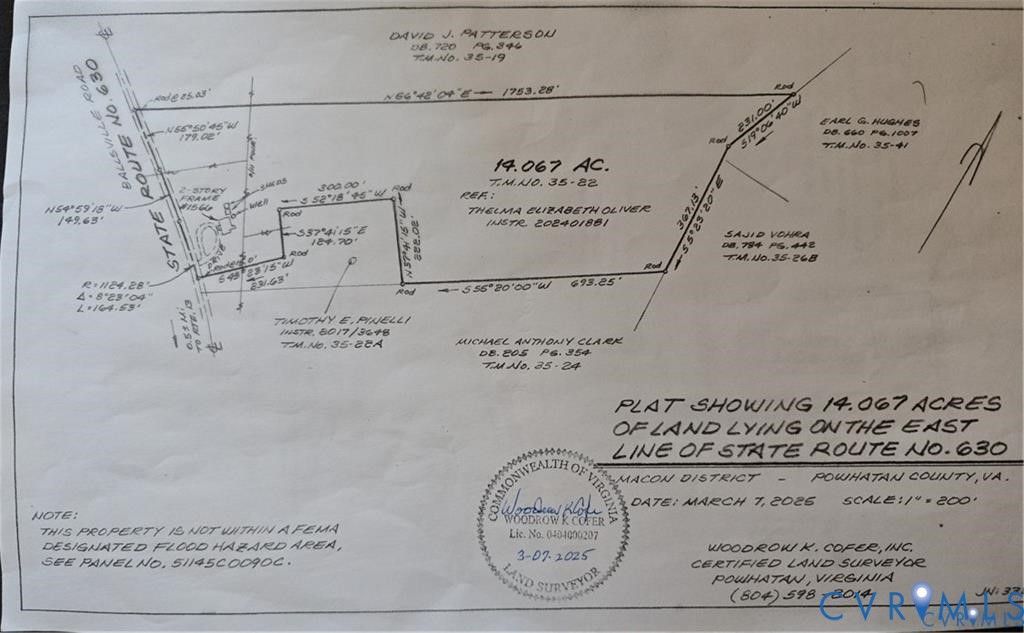 DAVID J. PATTERSON
DB. 720 PG. 346
T.M. NO. 35-19
BALLSVILLE ROAD
STATE ROUTE NO. 630
Rod @ 25.03'
N 56°42'04" E 1753.28'
Rod
231.00'
S 19°06'40" W
Rod
EARL G. HUGHES
DB. 660 PG. 1007
T.M. No. 35-41
N 55°50'45" W
179.02'
14.067 AC.
T.M. NO. 35-22
REF.:
THELMA ELIZABETH OLIVER
INSTR. 202401881
2-STORY
FRAME
#1566
SHEDS
Well
300.00'
S 52°18'45" W
Rod
Rod
N 54°59'18" W
149.63'
S 37°41'15" E
124.70'
N 37°41'15" W
222.02'
367.13'
S 5°23'20" E
SAJID VOHRA
DB. 784 PG. 442
T.M. No. 35-26B
Rod
S 48°23'15" W
231.63'
Rod
Rod
S 55°20'00" W 693.25'
R = 1124.28'
Δ = 8°23'04"
L = 164.53'
0.53 Mi.
TO RTE. 13
TIMOTHY E. PINELLI
INSTR. 2017/3648
T.M. No. 35-22A
MICHAEL ANTHONY CLARK
DB. 205 PG. 354
T.M. No. 35-24
PLAT SHOWING 14.067 ACRES
OF LAND LYING ON THE EAST
LINE OF STATE ROUTE NO. 630
MACON DISTRICT - POWHATAN COUNTY, VA.
DATE: MARCH 7, 2025 SCALE: 1" = 200'
COMMONWEALTH OF VIRGINIA
Woodrow K Cofer
WOODROW K COFER
Lic. No. 0404000207
3-07-2025
LAND SURVEYOR
NOTE:
THIS PROPERTY IS NOT WITHIN A FEMA
DESIGNATED FLOOD HAZARD AREA,
SEE PANEL NO. 51145C0090C.
WOODROW K. COFER, INC.
CERTIFIED LAND SURVEYOR
POWHATAN, VIRGINIA
(804) 598-8014
CVRMLS
CVRMLS